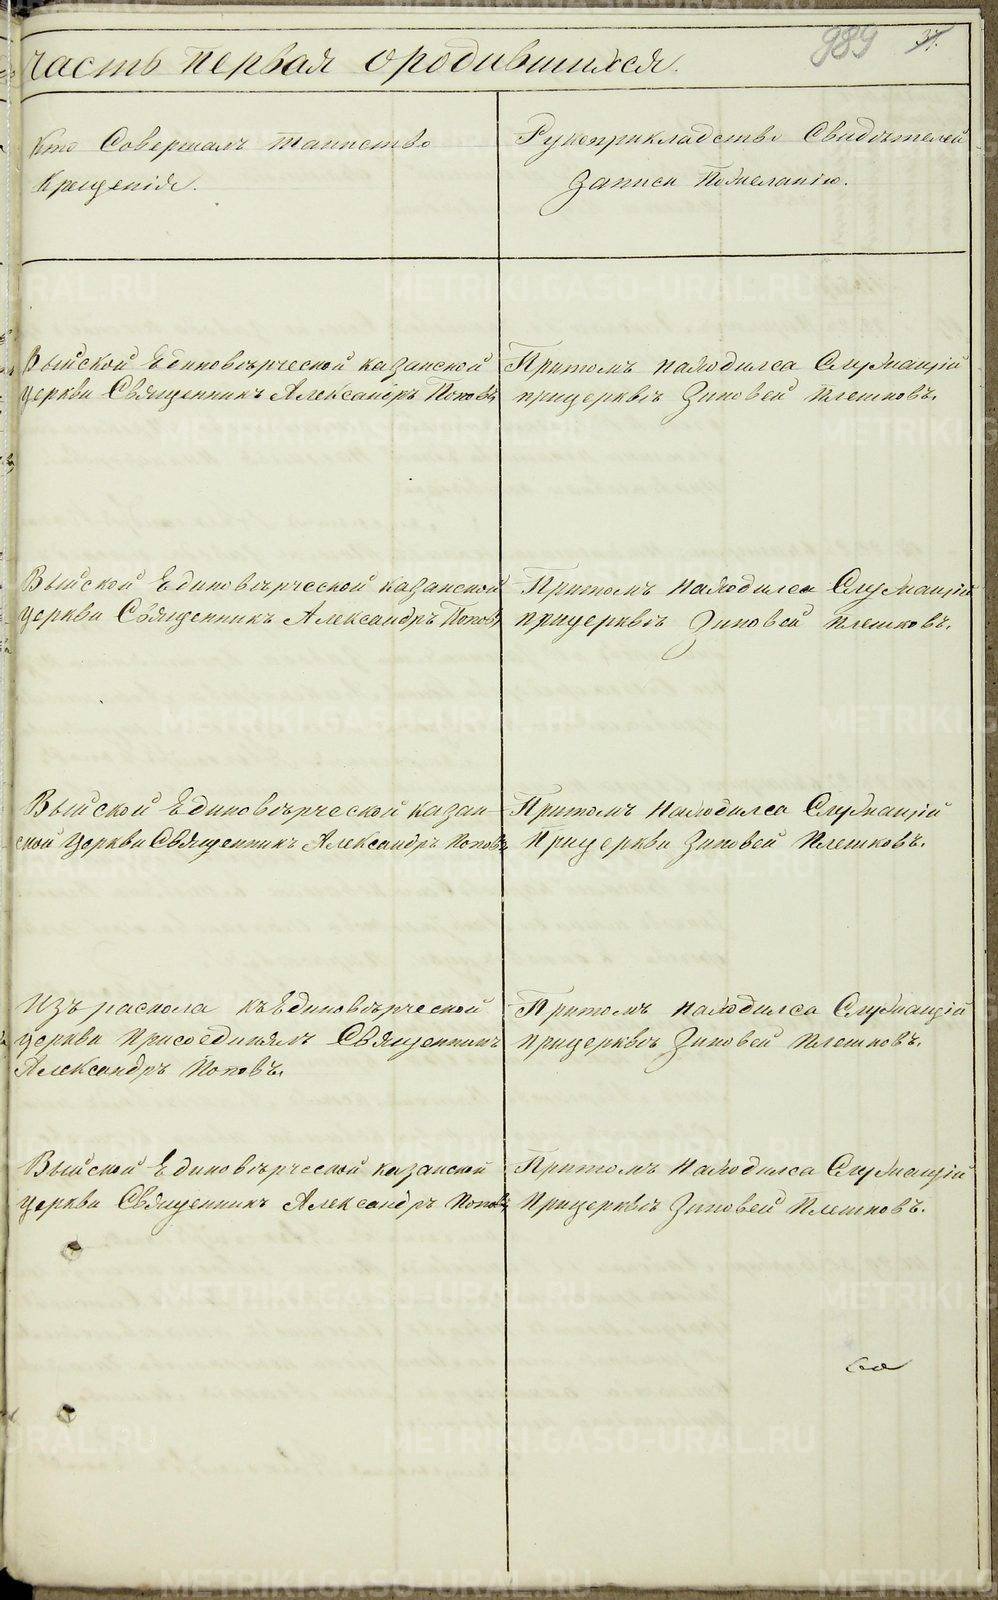 989 37.
часть первая ородившихся.
Кто Совершалъ таинство
Крещенія.
Рукоприкладство Свидѣтелей
Записи Пожеланію.
Выйской Единовѣрческой казанской
церкви Священникъ Александръ Поповъ
Притомъ находилса Служащій
прицерквѣ Зиновей Плешковъ.
Выйской Единовѣрческой казанской
церкви Священникъ Александръ Поповъ
Притомъ находилса Служащій
прицерквѣ Зиновей плешковъ.
Выйской Единовѣрческой казан-
ской церкви Священникъ Александръ Поповъ
Притомъ находилса Служащій
Прицеркви Зиновей Плешковъ.
Изъ раскола къЕдиновѣрческой
церкви присоединялъ Священникъ
Александръ Поповъ.
Притомъ находилса Служащій
прицерквѣ Зиновей Плешковъ.
Выйской Единовѣрческой казанской
церкви Священникъ Александръ Поповъ
Притомъ находилса Служащій
Прицерквѣ Зиновей Плешковъ.
METRIKI.GASO-URAL.RU